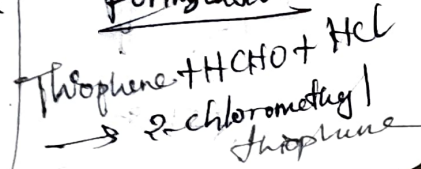 Thiophene + HCHO + HCl
→ 2-chloromethyl
thiophene